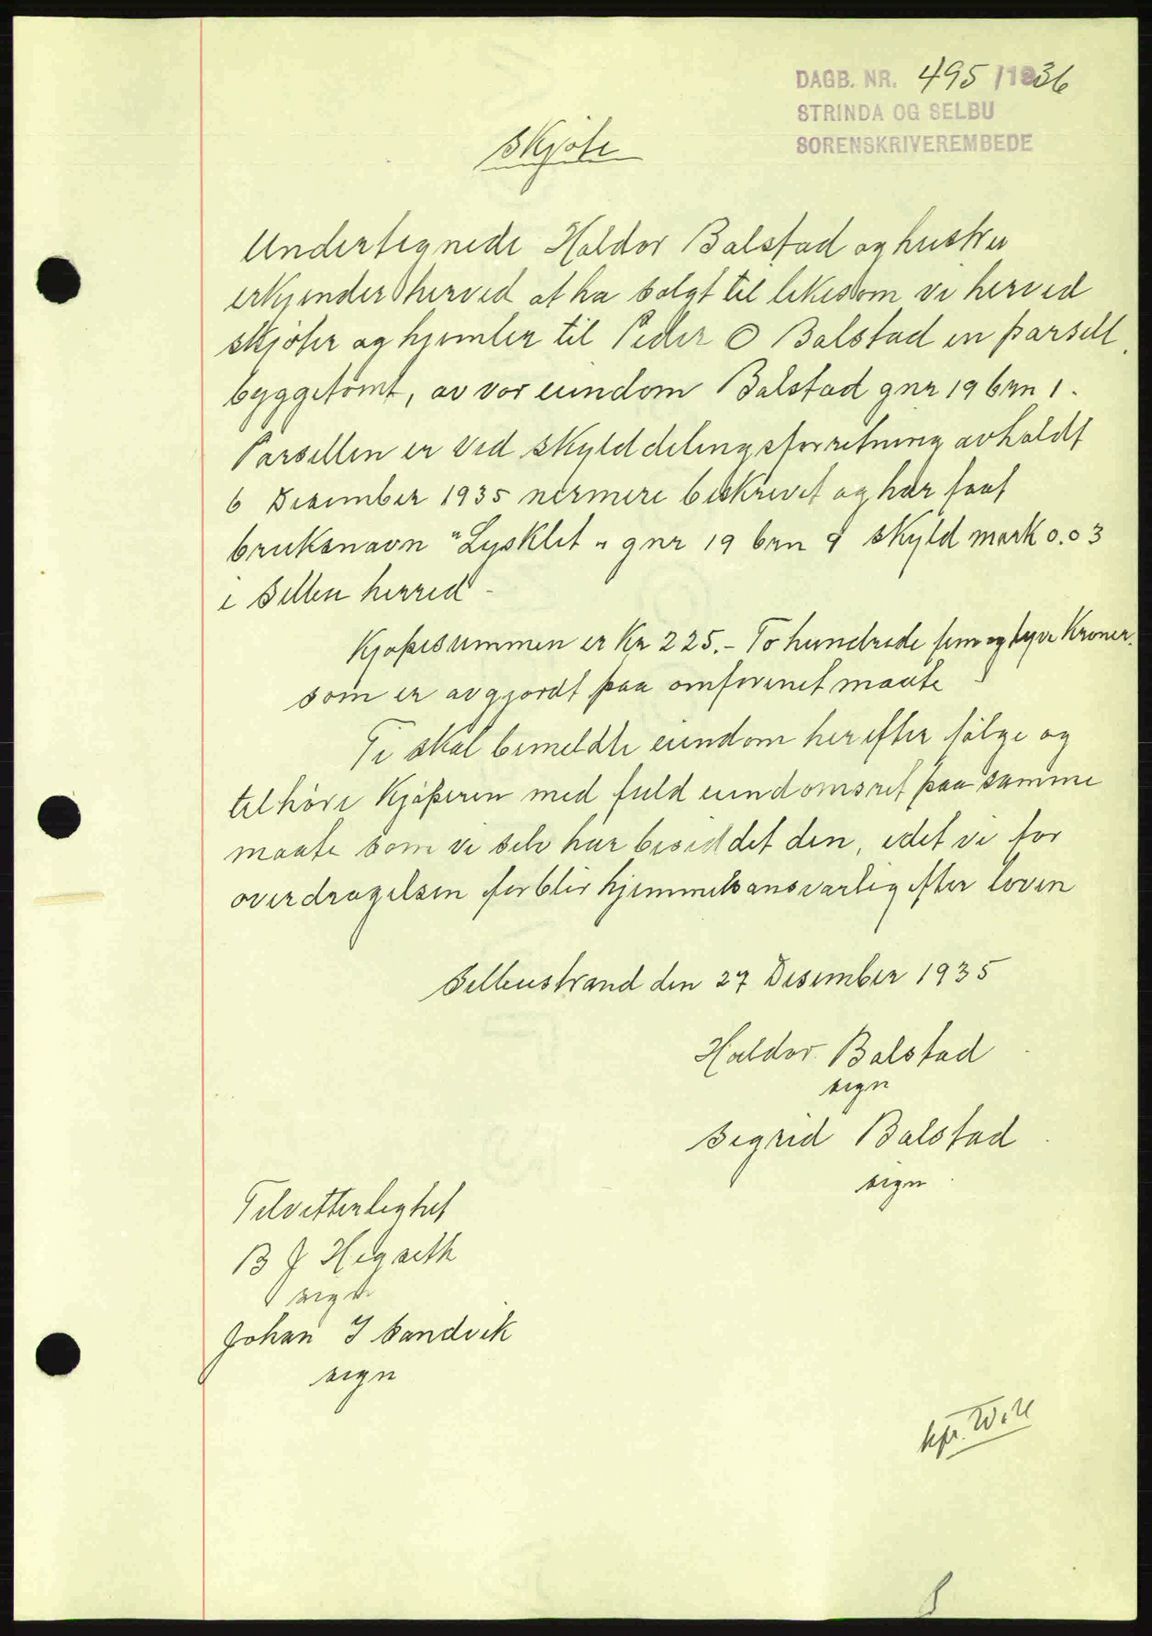 DAGB. NR. 495/1936
STRINDA OG SELBU
SORENSKRIVEREMBEDE
Skjøte
Undertegnede Haldor Balstad og hustru
erkjender herved at ha solgt til likesom vi herved
skjøter og hjemler til Peder O Balstad en parsell,
byggetomt, av vor eiendom Balstad gnr 19 brn 1.
Parsellen er ved skylddelingsforretning avholdt
6 Desember 1935 nermere beskrevet og har faat
bruksnavn "Lysklet" gnr 19 brn 9 skyld mark 0.03
i Selbu herred -
Kjøpesummen er Kr 225.- To hundrede fem og tyve Kroner.
som er avgjordt paa omforenet maate
Ti skal bemeldte eiendom herefter følge og
tilhøre Kjøperen med fuld eiendomsret paa samme
maate som vi selv har besiddet den, idet vi for
overdragelsen forblir hjemmelsansvarlig efter loven
Selbustrand den 27 Desember 1935
Haldor Balstad
sign
Sigrid Balstad
sign
Tilvitterlighet
B J Hegseth
sign
Johan J Sandvik
sign
kfr.